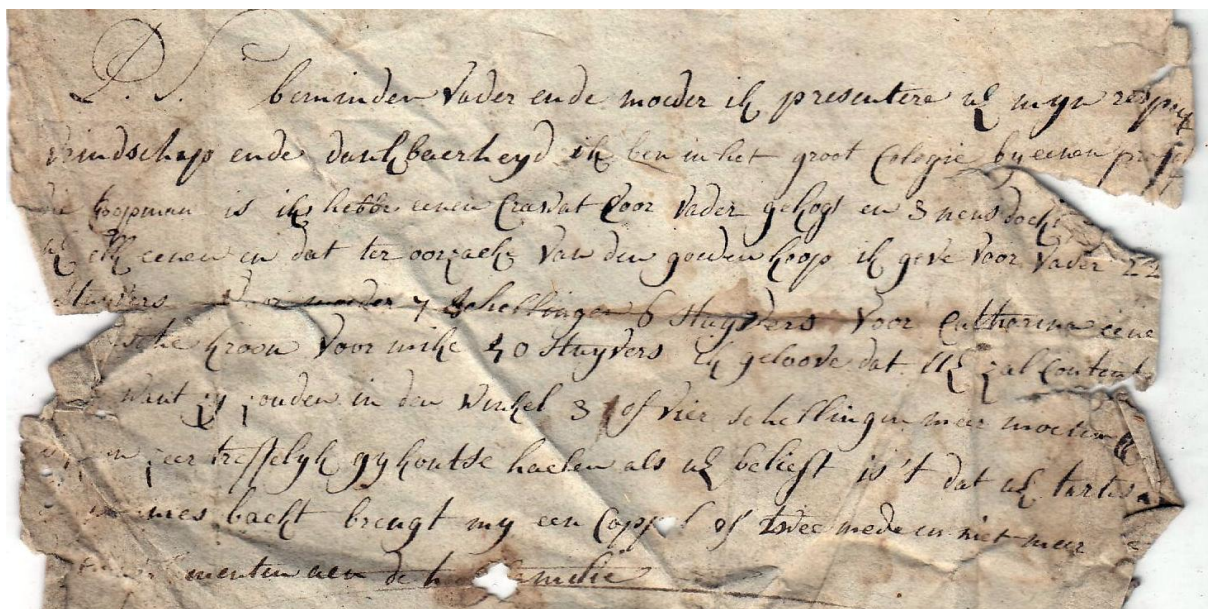 P. S.
beminden vader ende moeder ik presentere uE myn respect
vrindschap ende dankbaerheyd ik ben in het groot Cologie by eenen
die koopman is ik hebbe eenen Cravat voor vader gekogt en 3 neusdoeken
uE elk eenen en dat ter oorzaeke van den goeden koop ik geve voor vader 22
stuyvers voor moeder 7 schellingen 6 stuyvers voor Catharina eene
kroon voor mike 40 stuyvers ik geloove dat UE zal Content
want zy zouden in den winkel 3 of vier schellingen meer moeten
zeer treffelyk gy kontse haelen als uE belieft is't dat uE tartes
backt brengt my een Coppel of twee mede en niet meer
menten aen de familie